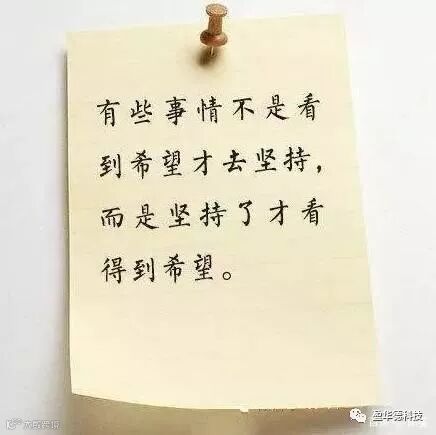 有些事情不是看
到希望才去坚持，
而是坚持了才看
得到希望。
盈华德科技
大成跨境